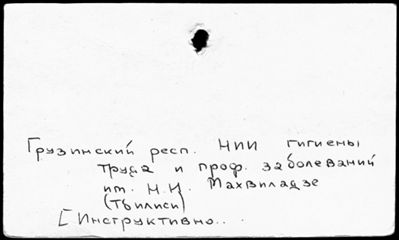 Грузинский респ. НИИ гигиены
труда и проф. заболеваний
им. Н.И. Махвиладзе
(Тбилиси)
[Инструктивно...